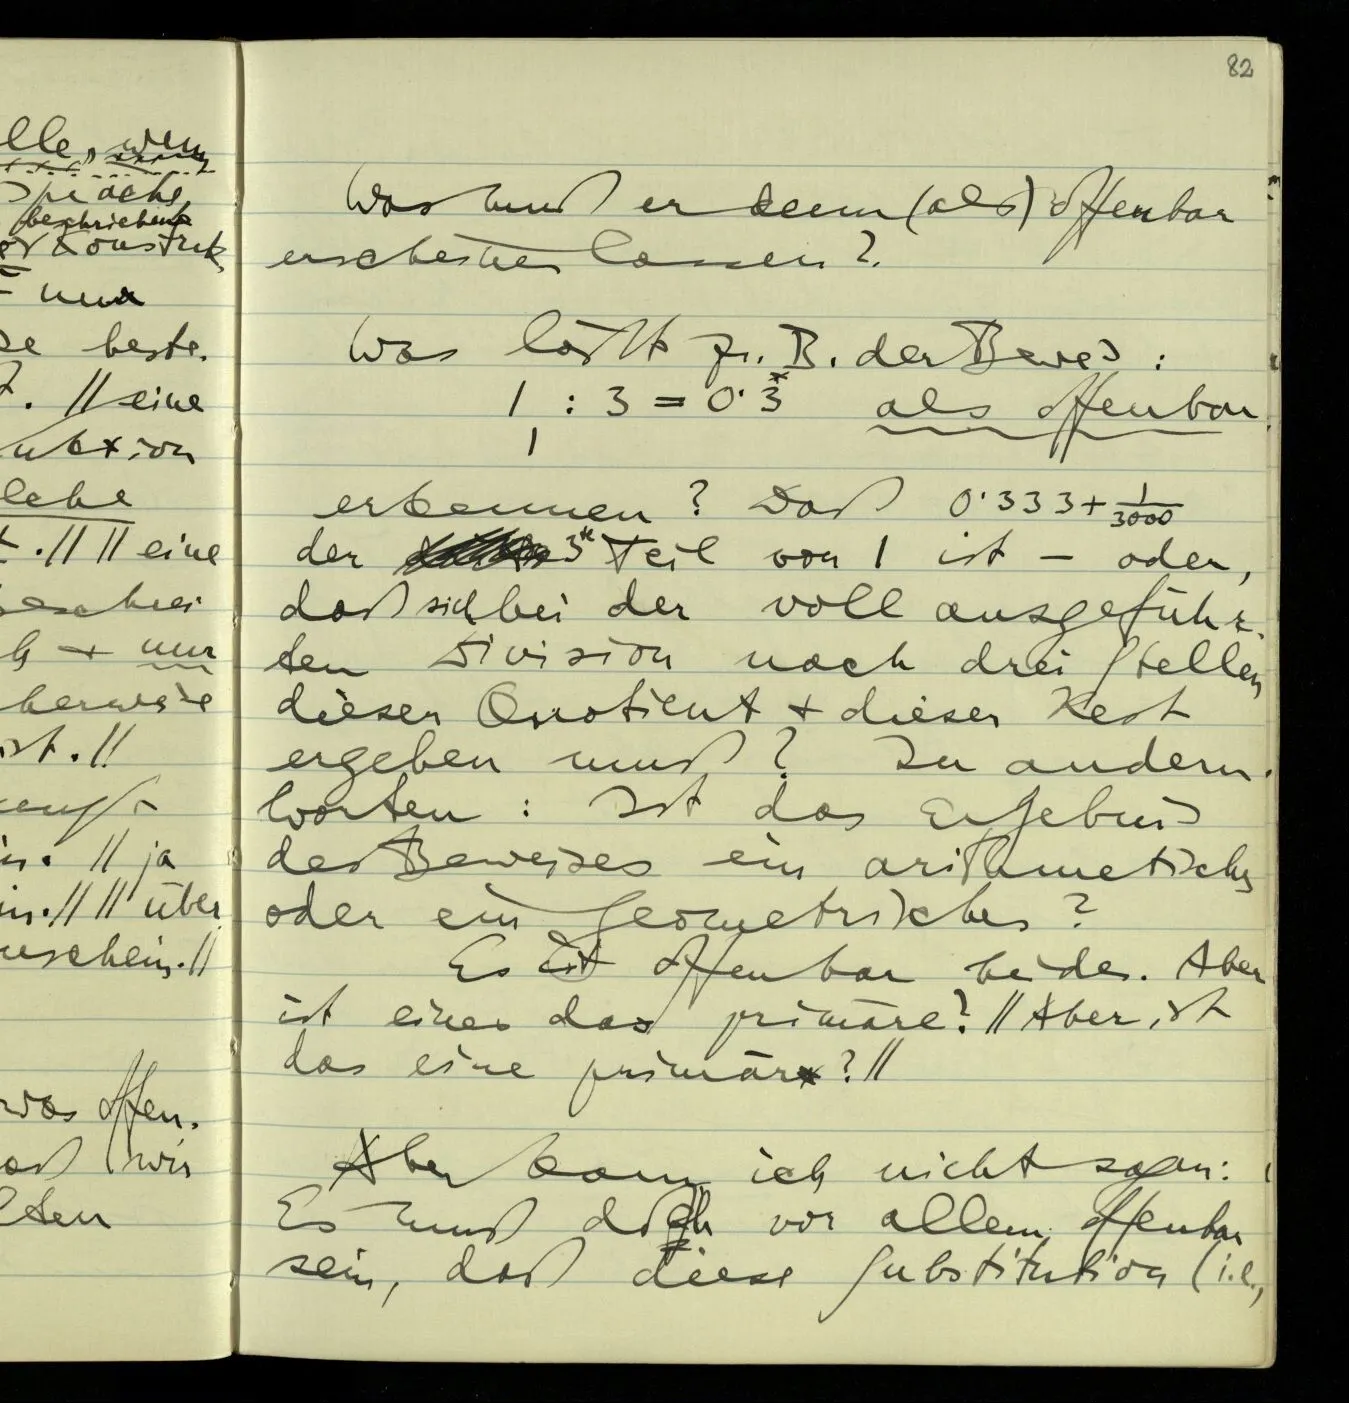 lle, wenn
Sprache
beschriebene
er Konstruk
– nur
se beste.
t. || eine
uktion
lche
t. || || eine
beschrei
h + nur
berweise
ist. ||
in. || ja
in. || || über
uschein. ||
was offen.
aß wir
lten
82
Was muß er denn (als) offenbar
erscheinen lassen?
Was läßt z. B. der Beweis :
1 : 3 = 0·3 als offenbar
1
erkennen? Daß 0·333 + 1/3000
der 3te Teil von 1 ist – oder,
daß sich bei der voll ausgeführ-
ten Division nach drei Stellen
dieser Quotient + dieser Rest
ergeben muß? In andern
Worten : Ist das Ergebnis
des Beweises ein arithmetisches
oder ein geometrisches?
Es ist offenbar beides. Aber
ist eines das primäre? || Aber ist
das eine primär? ||
Aber kann ich nicht sagen:
Es muß doch vor allem offenbar
sein, daß diese Substitution (i.e.,